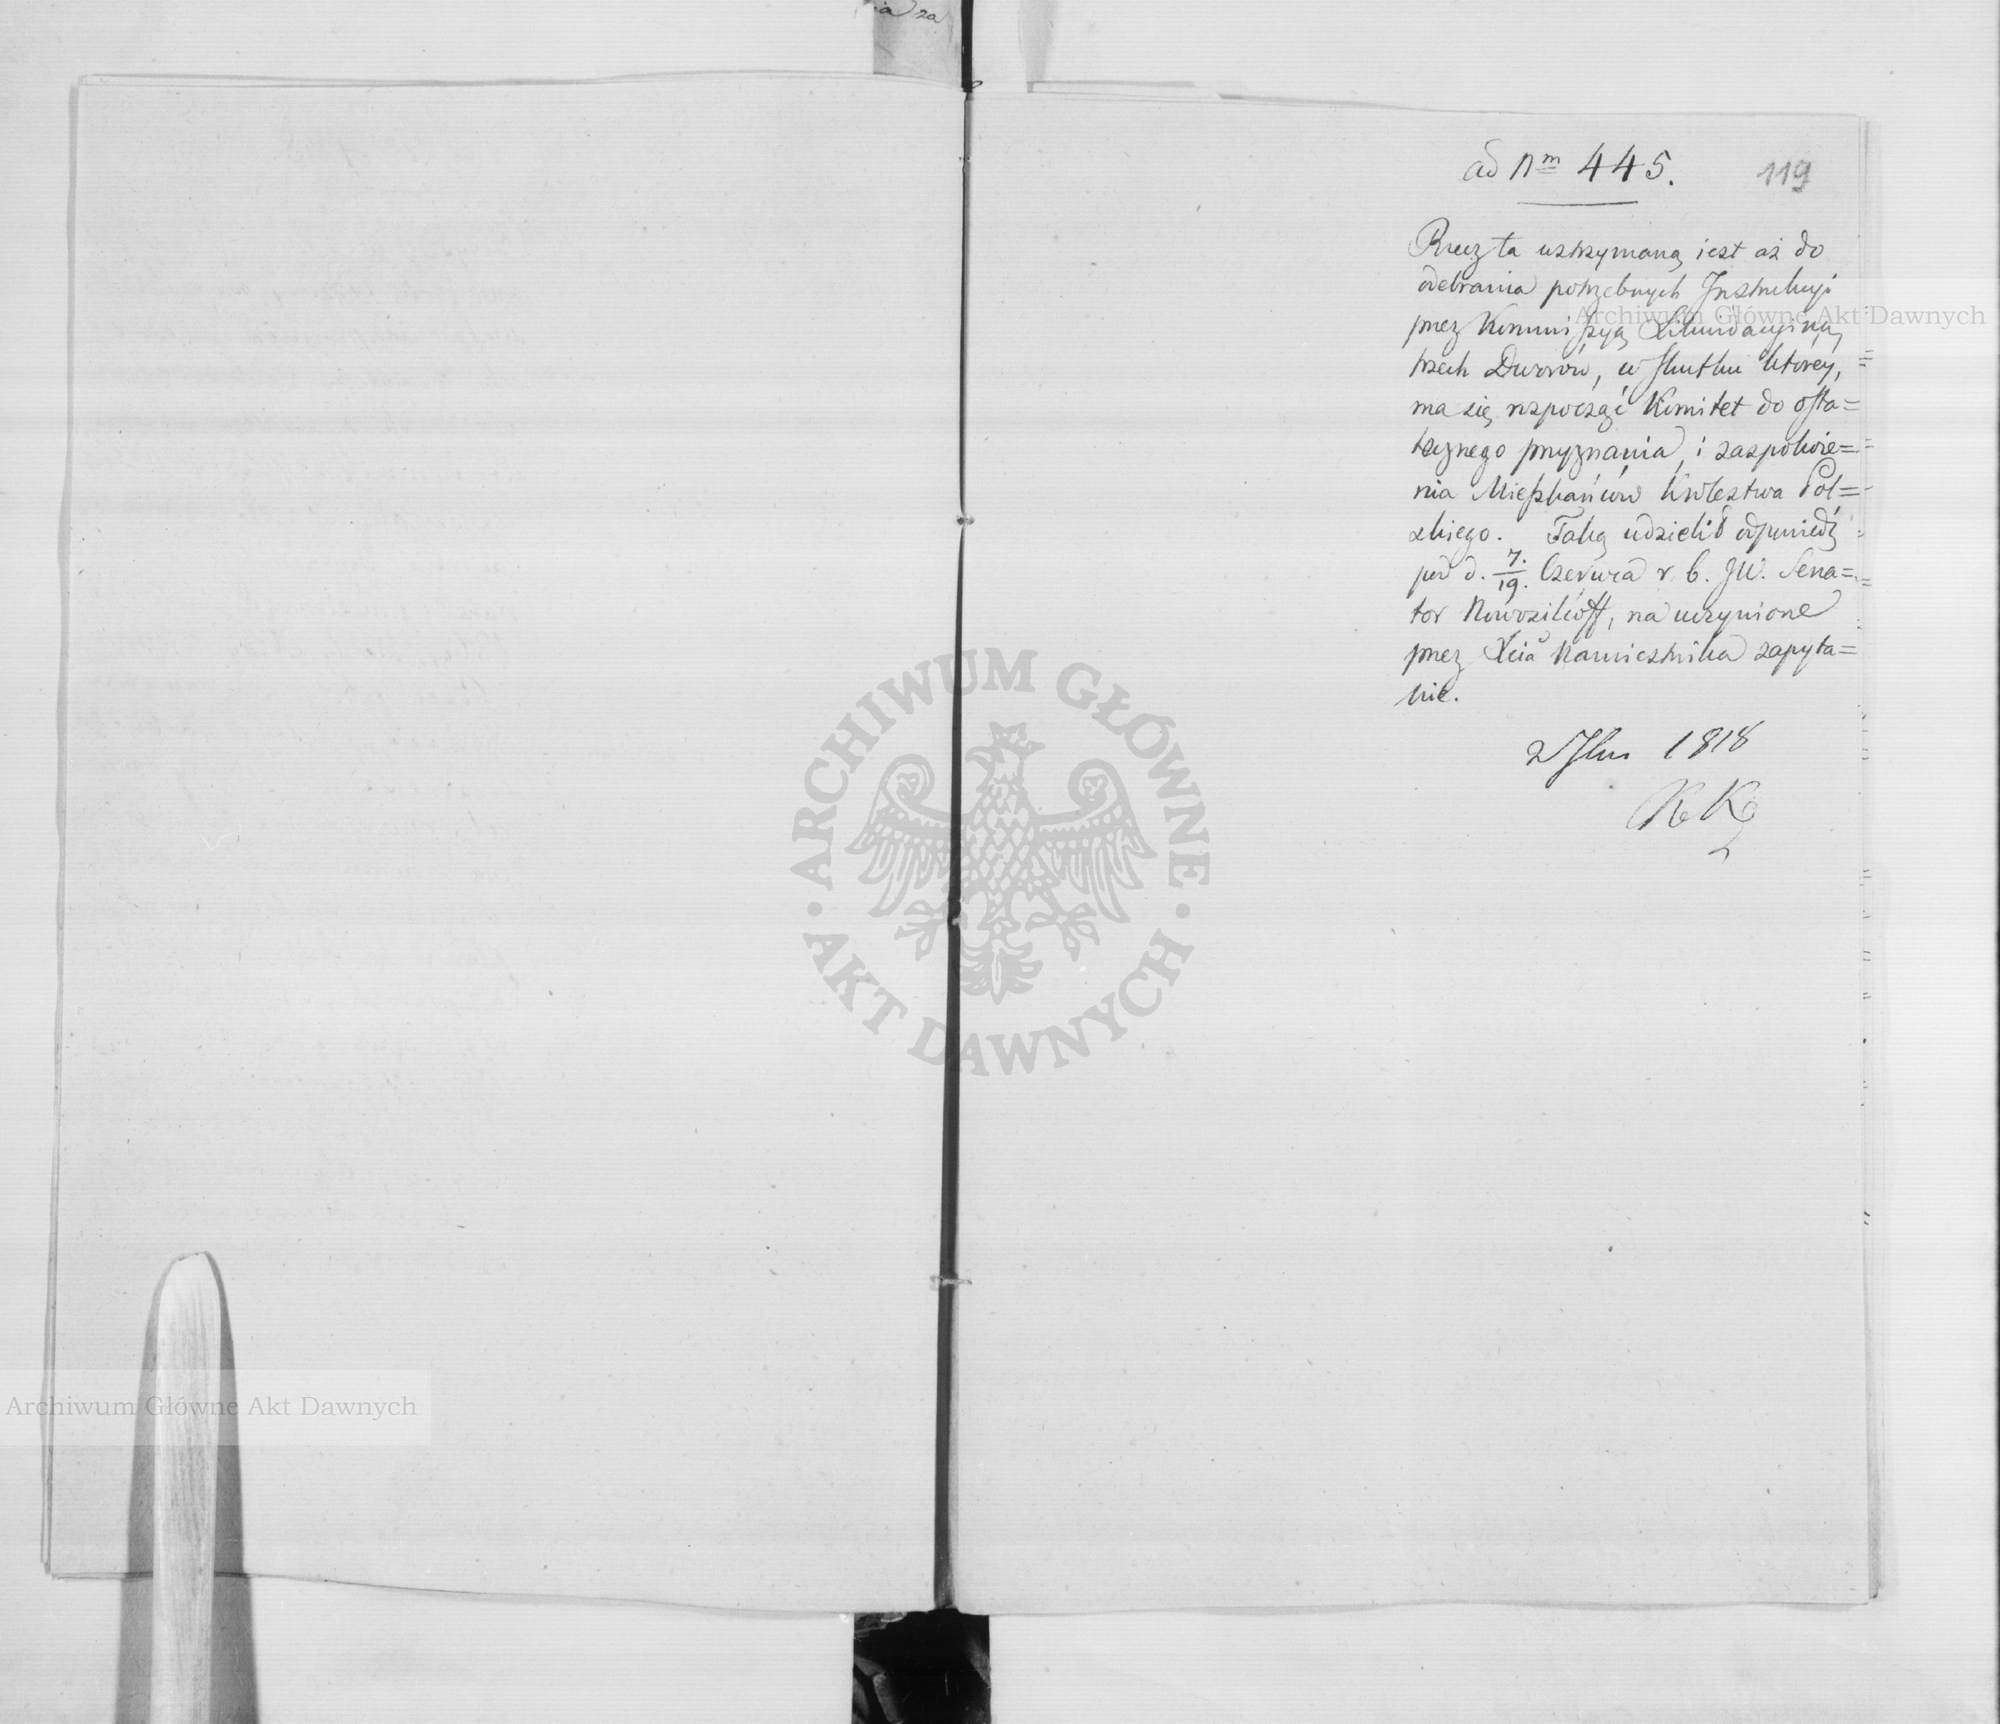 ia za
ad Nm 445.
119
Rzecz ta wstrzymaną iest aż do
odebrania potrzebnych Instrukcyi
przez Kommissyą Likwidacyiną
trzech Dworów, w skutku którey,
ma się rozpocząć Komitet do osta=
tecznego przyznania, i zaspokoie=
nia Mieszkańców Królestwa Pol=
skiego. Taką udzielił odpowiedź
pod d. 7./19. Czerwca r. b. JW. Sena=
tor Nowosilcoff, na uczynione
przez Xcia Namiestnika zapyta=
nie.
1818
Archiwum Główne Akt Dawnych
ARCHIWUM GŁÓWNE · AKT DAWNYCH ·
Archiwum Główne Akt Dawnych